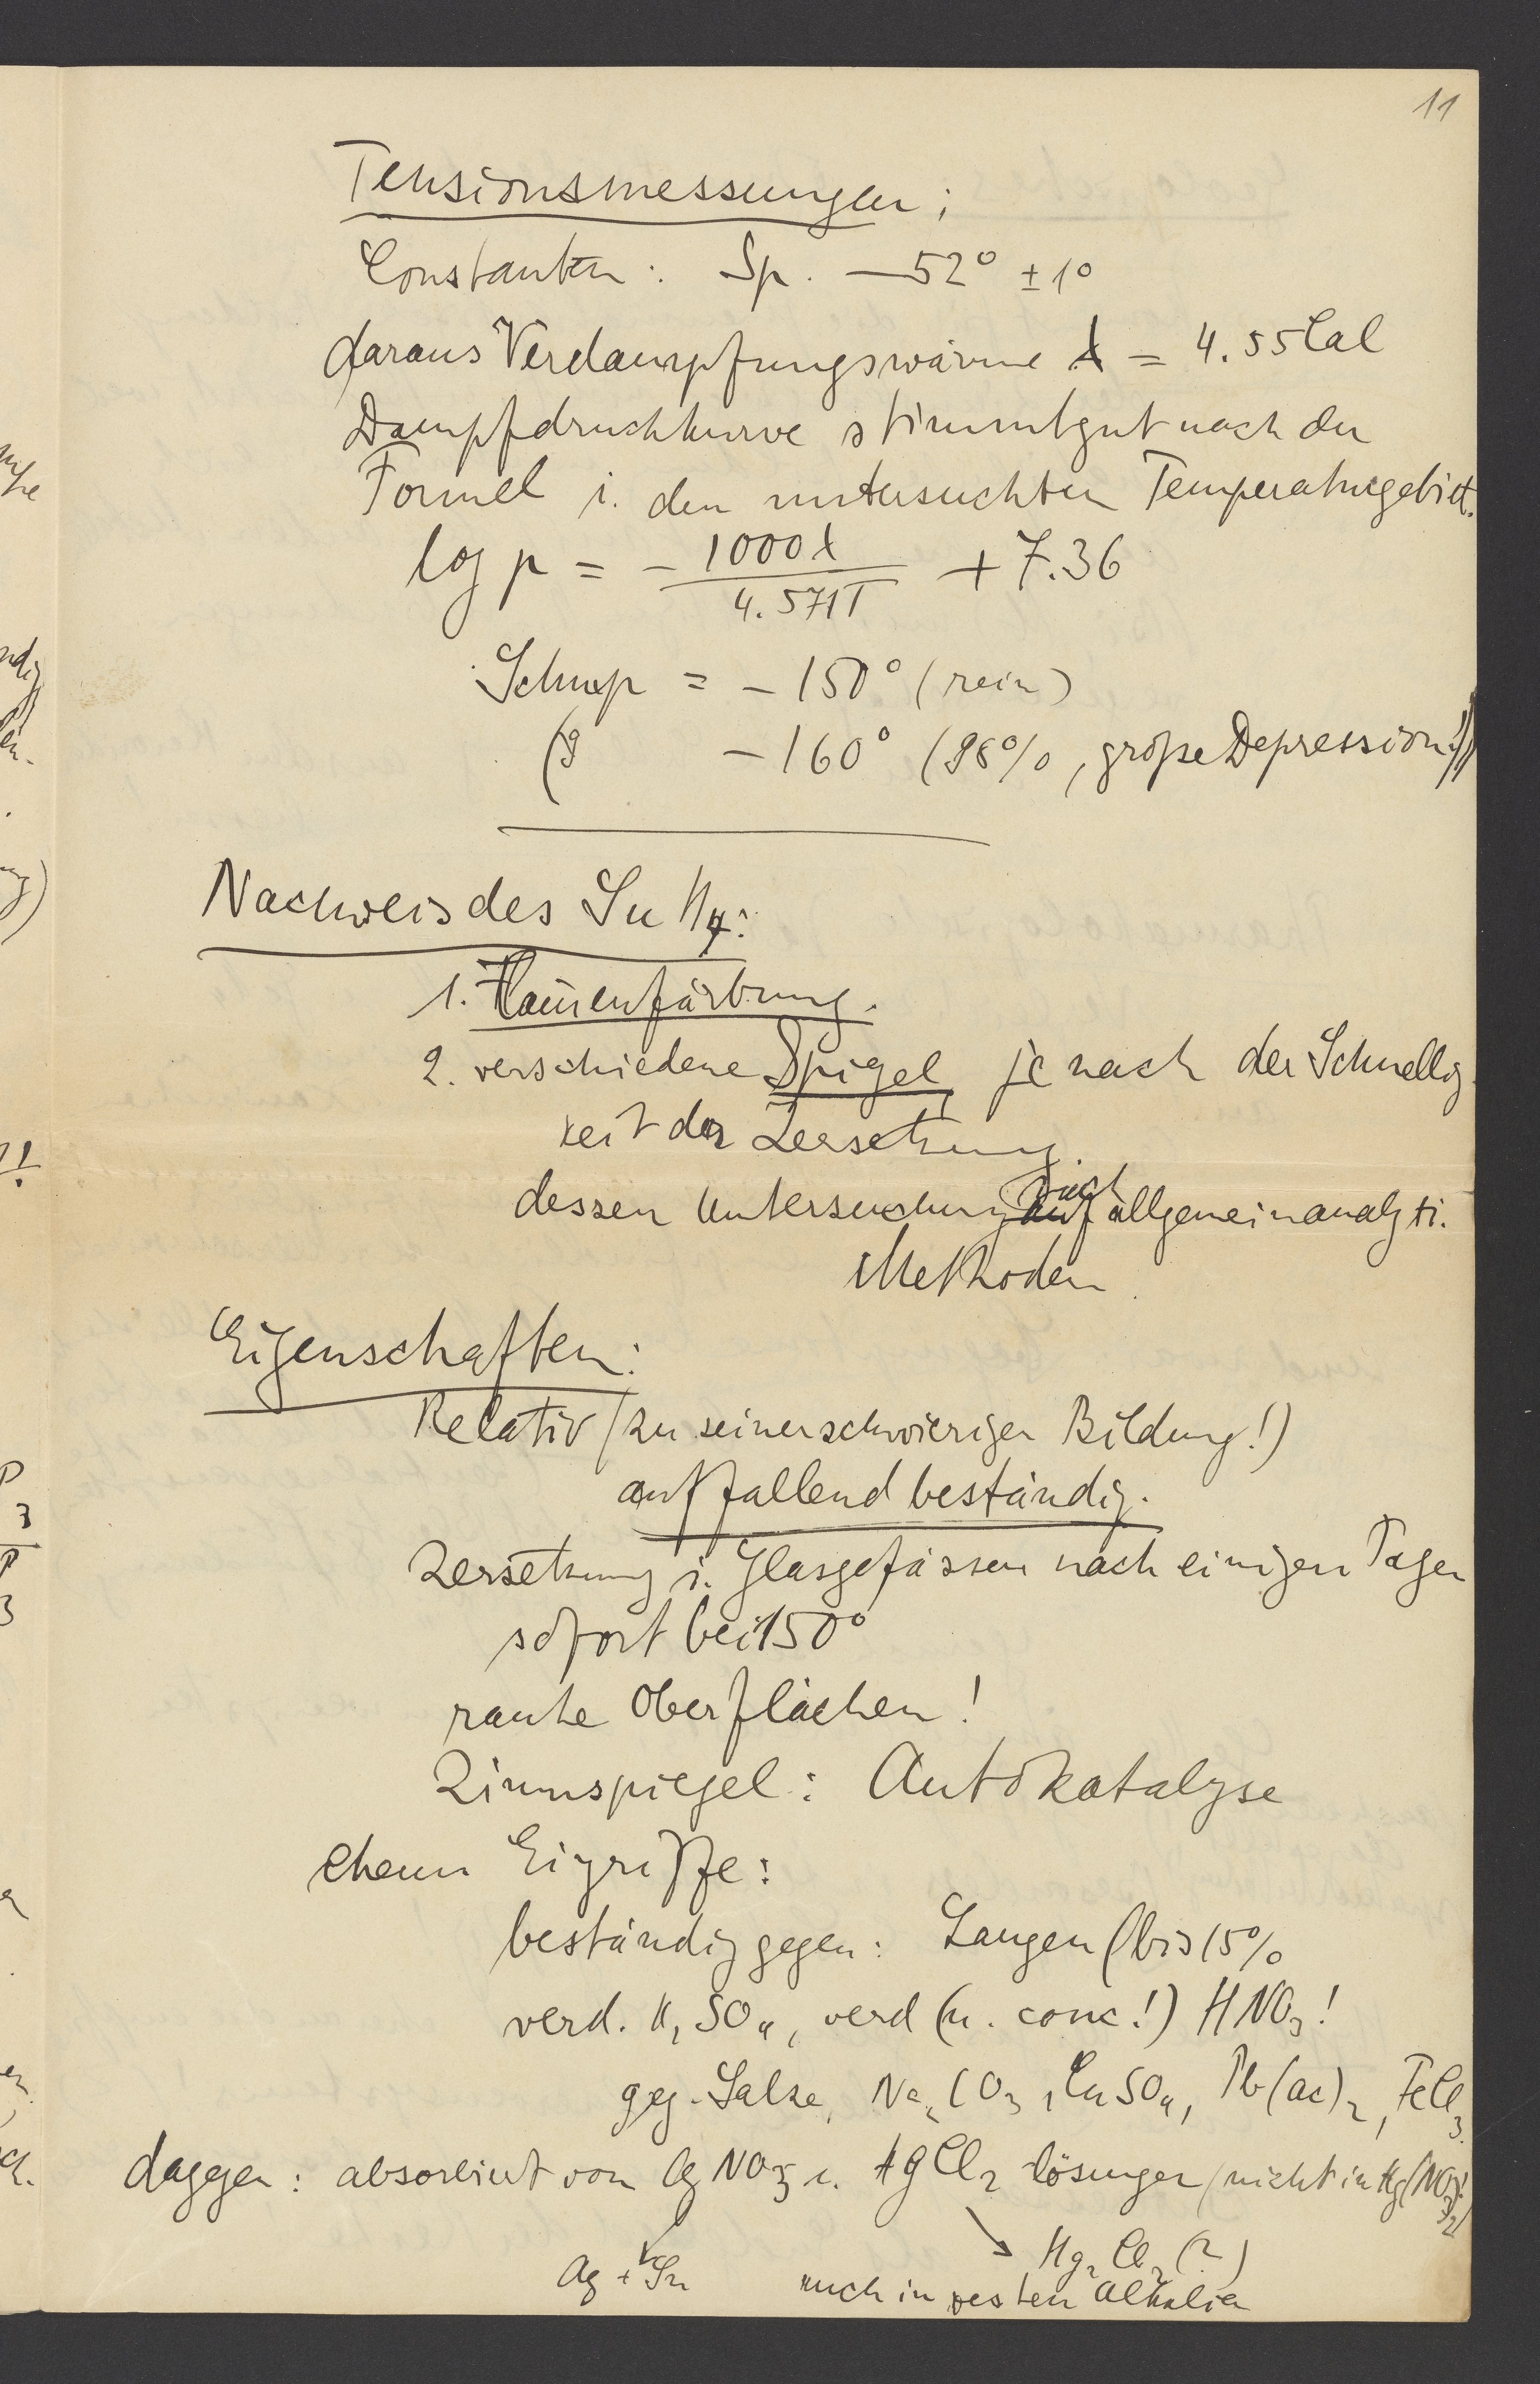 11
Tensionsmessungen;
Constanten: Sp. —52° ± 1°
daraus Verdampfungswärme λ = 4.55 Cal
Dampfdruckkurve stimmt gut nach der
Formel i. den untersuchten Temperaturgebiet.
log p = - 1000λ / 4.571T + 7.36
Schmp = - 150° (rein)
- 160° (98%, große Depression!))
Nachweis des SnH4:
1. Flam̄enfärbung.
2. verschiedene Spigel, je nach der Schnellig
keit der Zersetzung.
dessen Untersuchung nach allgemein analyti.
Methoden
Eigenschaften:
Relativ (zu seiner schwierigen Bildung!)
auffallend beständig.
Zersetzung i. Glasgefässen nach einigen Tagen
sofort bei 150°
rauhe Oberflächen!
Zinnspiegel: Autokatalyse
chem Eigriffe:
beständig gegen: Laugen (bis 15%
verd. H2SO4, verd (u. conc!) HNO3!
geg. Salze, Na2CO3, CuSO4, Pb(ac)2, FeCl3.
daggen: absorbiert von AgNO3 u. HgCl2 lösungen (nicht in Hg(NO3)2!)
↘ Hg2Cl2 (?)
Ag + Sn auch in festen Alkalien